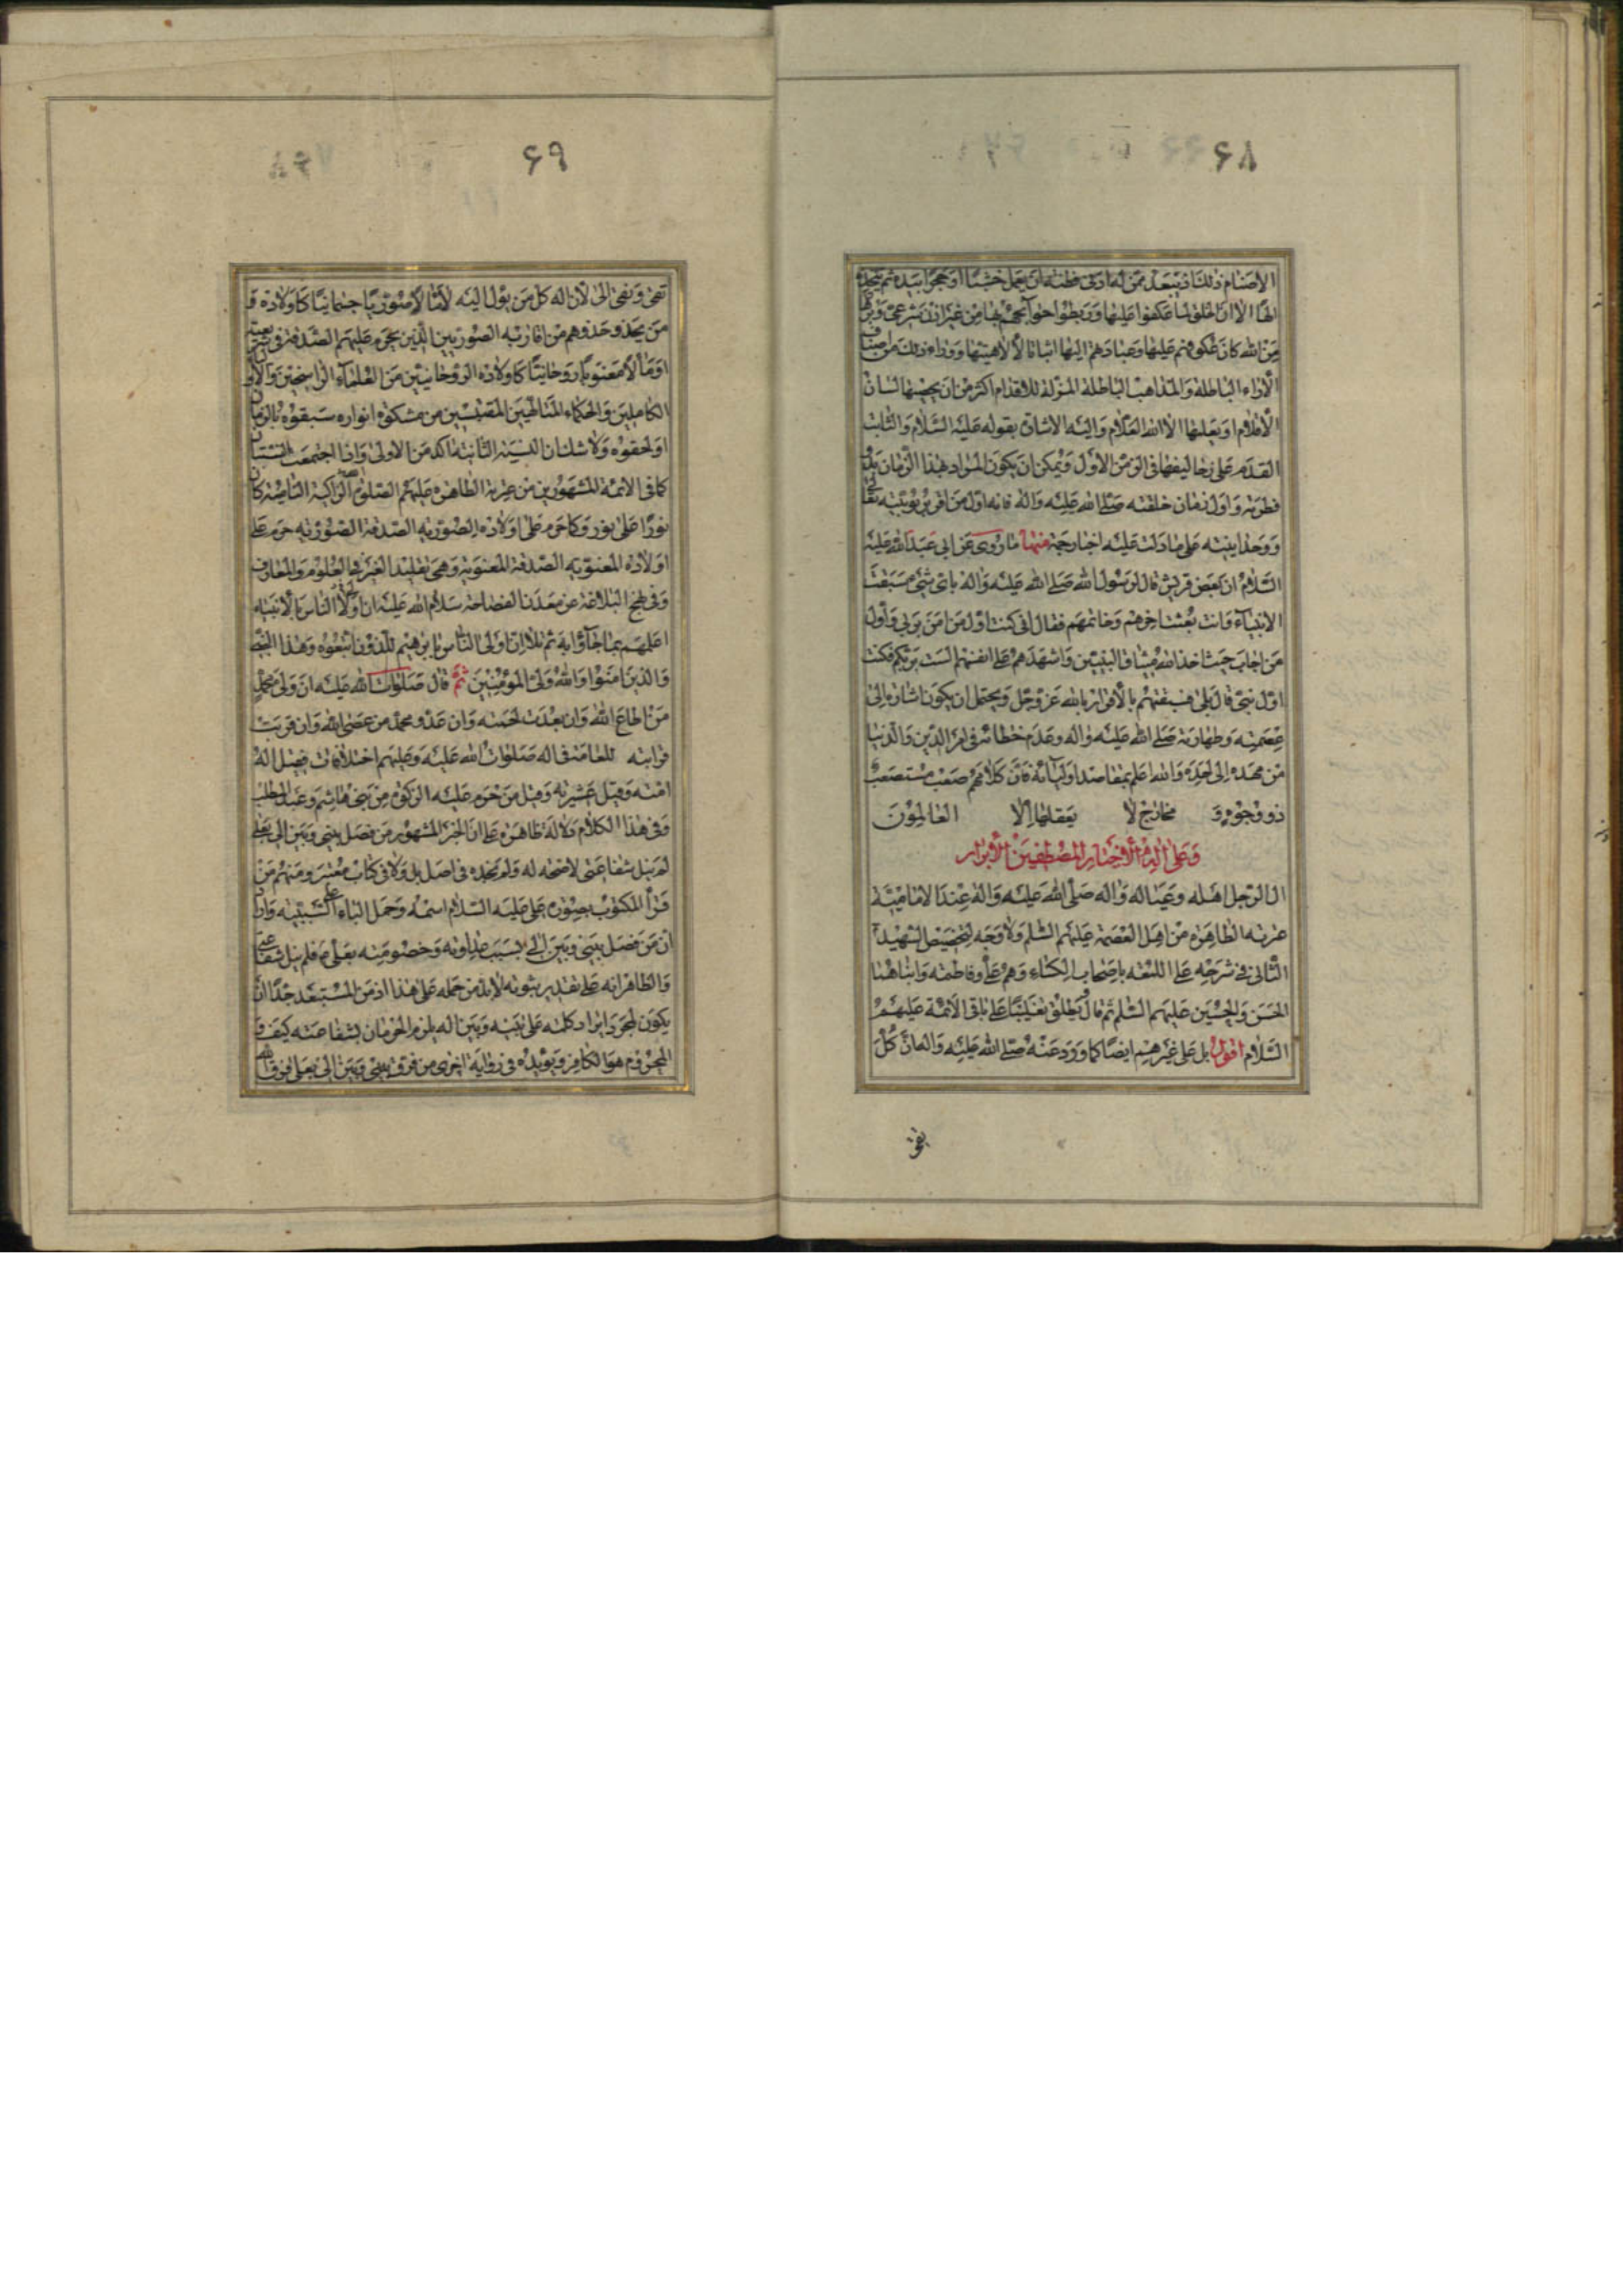 ۶۸
الاصنام ذلك اذ يبعد ممن له ادنى فطنة ان يعمل خشبا او حجرا بيده ثم يتخذه
الها الا ان الخلق لما عكفوا عليها وربطوا حوائجهم بها من غير اذن شرعى
من الله كان عكوفهم عليها وعبادتهم اليها اثباتا لالاهيتها ووراء ذلك من اصناف
الآراء الباطلة والمذاهب الباطلة المزلة للاقدام اكثر من ان يحصيها لسان
الاقلام او يعلمها الا الله العلام واليه الاشارة بقوله عليه السلام والثابت
القدم على زحاليفها فى الزمن الاول ويمكن ان يكون المراد بهذا الزمان بدو
فطرته واول زمان خلقته صلى الله عليه واله فانه اول من اقر بربوبيته تعالى
ووحدانيته على ما دلت عليه اخبار جمة منها ما روى عن ابى عبد الله عليه
السلام ان بعض قريش قال لرسول الله صلى الله عليه واله باى شئ سبقت
الانبياء وانت بعثت اخرهم وخاتمهم فقال انى كنت اول من امن بربى واول
من اجاب حيث اخذ الله ميثاق النبيين واشهدهم على انفسهم الست بربكم فكنت
اول نبى قال بلى فسبقتهم بالاقرار بالله عز وجل ويحتمل ان يكون اشارة الى
عصمته وطهارته صلى الله عليه واله وعدم خطائه فى امر الدين والدنيا
من مهده الى لحده والله اعلم بمقاصد اوليائه فان كلامهم صعب مستصعب
ذو وجوه و مخارج لا يعقلها الا العالمون
وعلى اله الاخيار المصطفين الابرار
ال الرجل اهله وعياله واله صلى الله عليه واله عند الامامية
عترته الطاهرة من اهل العصمة عليهم السلم ولا وجه لتخصيص الشهيد
الثانى فى شرحه على اللمعة باصحاب الكساء وهم على وفاطمة وابناهما
الحسن والحسين عليهم السلم ثم قال ويطلق تغليبا على باقى الائمة عليهم
السلام اقول بل على غيرهم ايضا كما ورد عنه صلى الله عليه واله ان كل
تقى
۶۹
تقى ونقى الى لان اله كل من يؤل اليه لاما لا صوريا جسمانيا كاولاده و
من يحذو حذوهم من اقاربه الصوريين الذين يحرم عليهم الصدقة فى شريعته
او مالا معنويا روحانيا كاولاده الروحانيين من العلماء الراسخين والاولياء
الكاملين والحكماء المتالهين المقتبسين من مشكوة انواره سبقوه بالزمان
او لحقوه ولا شك ان النسبة الثانية اكد من الاولى واذا اجتمعت النسبتان
كما فى الائمة المشهورين من عترته الطاهرة عليهم الصلوة الزاكية النامية كان
نورا على نور وكما حرم على اولاده الصورية الصدقة الصورية حرم على
اولاده المعنوية الصدقة المعنوية وهى تقليد الغير فى العلوم والمعارف
وفى نهج البلاغة عن معدن الفصاحة سلام الله عليه ان اولى الناس بالانبياء
اعلمهم بما جاؤا به ثم تلا ان اولى الناس بابرهيم للذين اتبعوه وهذا النبى
والذين امنوا والله ولى المؤمنين ثم قال صلوات الله عليه ان ولى محمد
من اطاع الله وان بعدت لحمته وان عدو محمد من عصى الله وان قربت
قرابته للعامة فى اله صلوات الله عليه وعليهم اختلافات فقيل اله
امته وقيل عشيرته وقيل من حرم عليه الزكوة من بنى هاشم وعبد المطلب
وفى هذا الكلام دلالة ظاهرة على ان الخبر المشهور من فصل بينى وبين الى بعلى
لم ينل شفاعتى لا صحة له ولم نجده فى اصل بل ولا فى كتاب معتبر ومنهم من
قرأ المكتوب بصورة على عليه السلام اسمه وحمل الباء على السببية واراد
ان من فصل بينى وبين الى بسبب عداوته وخصومته بعلى ع فلم ينل شفاعتى
والظاهر انه على تقدير ثبوته لا بد من حمله على هذا اذ من المستبعد جدا ان
يكون لمجرد ايراد كلمة على بينه وبين اله يلزم الحرمان لشفاعته كيف و
المحروم هو الكافر ويؤيده فى رواية اخرى من فرق بينى وبين الى بعلى فرق الله